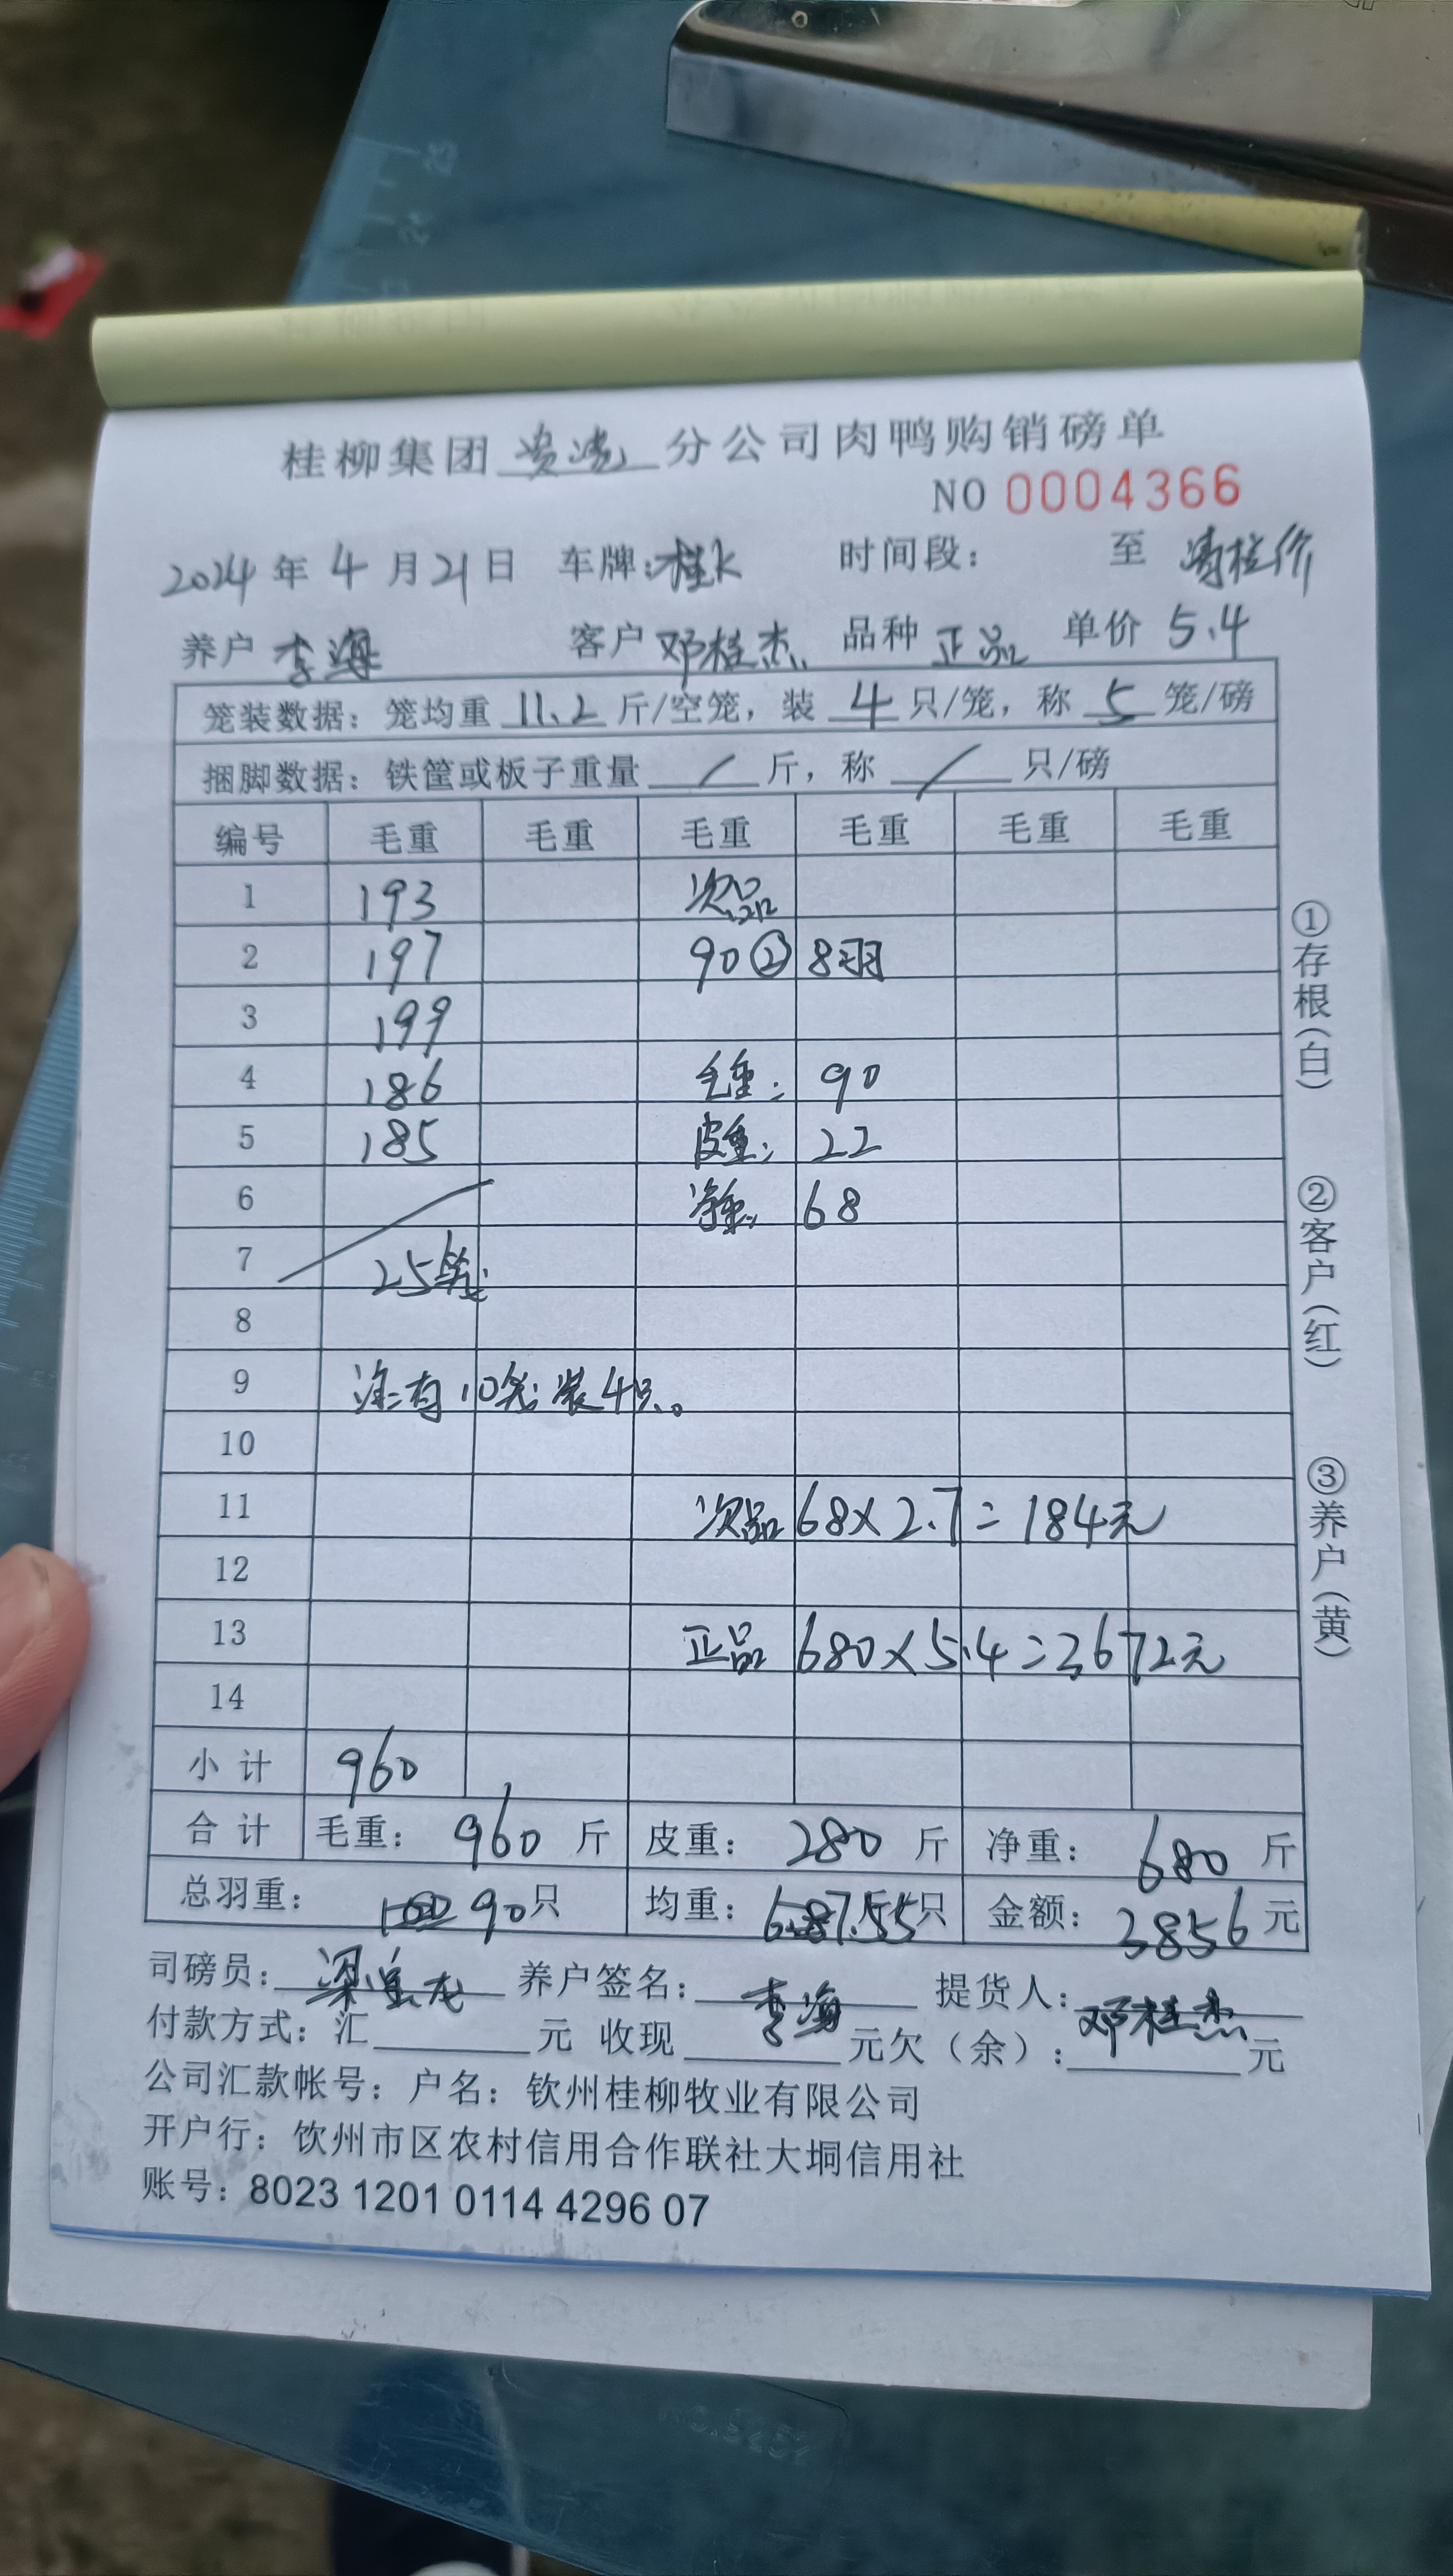 桂柳集团 分公司肉鸭购销磅单
NO 0004366
2024年4月21日 车牌: 时间段: 至
养户 李海 客户 邓桂杰 品种 正品 单价 5.4
笼装数据：笼均重 11.2 斤/空笼，装 4 只/笼，称 5 笼/磅
捆脚数据：铁筐或板子重量 / 斤，称 / 只/磅
编号 毛重 毛重 毛重 毛重 毛重 毛重
1 193 次品
2 197 90② 8羽
3 199
4 186 毛重: 90
5 185 皮重: 22
6 净重: 68
7 25笼
8
9 注:有10笼装4只。
10
11 次品 68×2.7=184元
12
13 正品 680×5.4=3672元
14
小计 960
合计 毛重: 960 斤 皮重: 280 斤 净重: 680 斤
总羽重: 90只 均重: 7.55只 金额: 3856元
司磅员: 养户签名: 李海 提货人: 邓桂杰
付款方式: 汇 元 收现 元欠（余）: 元
公司汇款帐号：户名：钦州桂柳牧业有限公司
开户行：钦州市区农村信用合作联社大垌信用社
账号：8023 1201 0114 4296 07
①存根(白)
②客户(红)
③养户(黄)